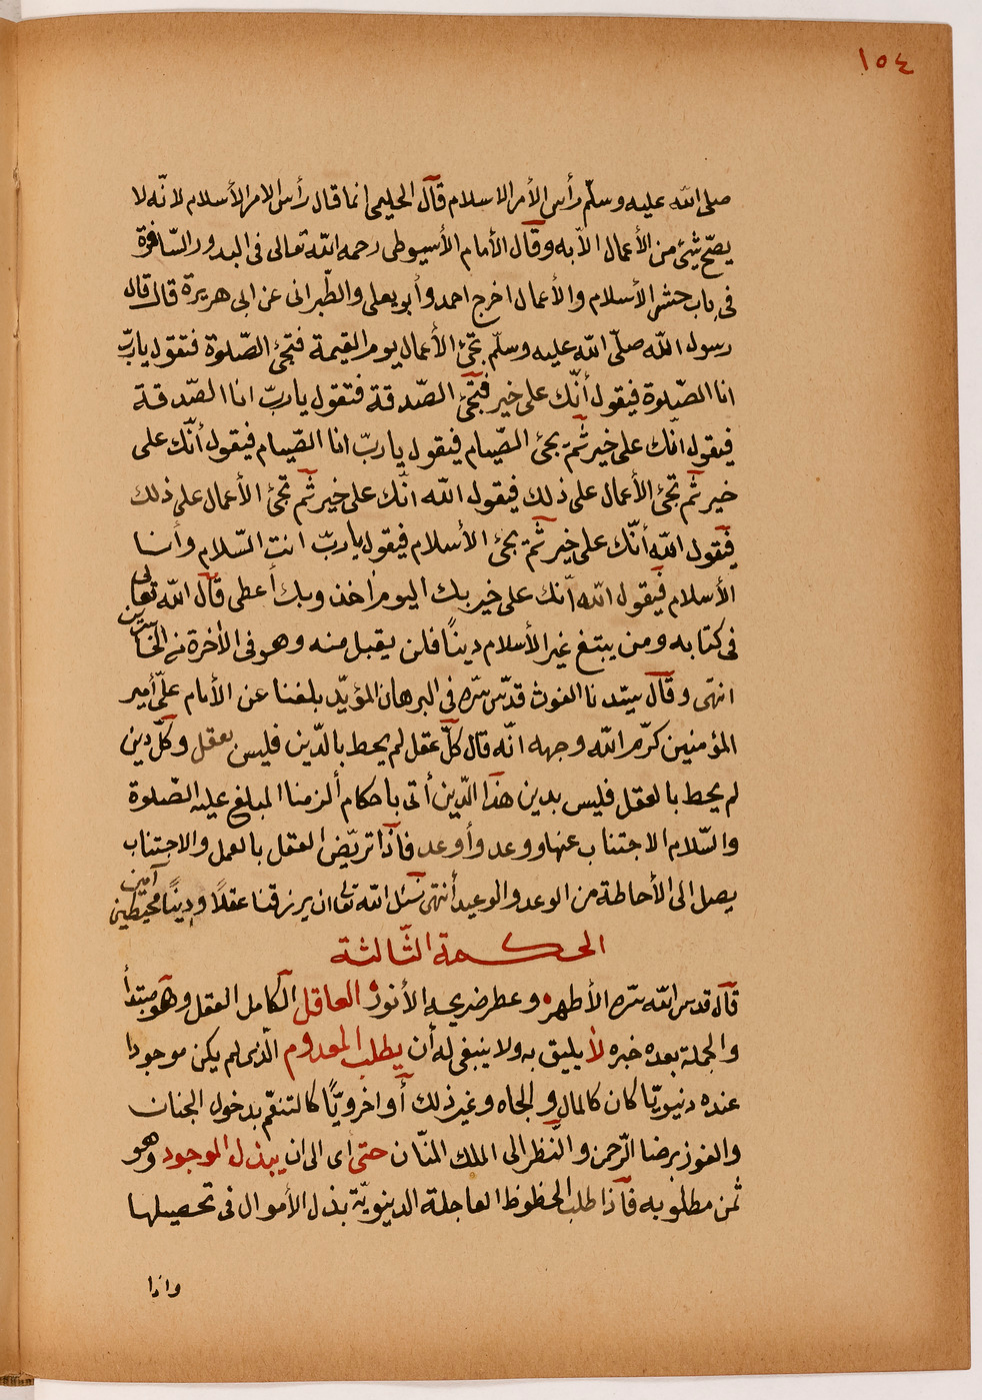 ١٥٤
صلى الله عليه وسلّم رأس الأمر الاسلام قال الحليمى انما قال رأس الامر الأسلام لانّه لا
يصّح شئ من الأعمال الاّ به وقال الأمام الأسيوطى رحمه الله تعالى فى البدور السّافرة
فى باب حشر الأسلام والأعمال اخرج احمد وأبو يعلى والطّبرانى عن ابى هريرة قال قال
رسول الله صلّى الله عليه وسلّم تجئ الأعمال يوم القيمة فتجئ الصّلوة فتقول ياربّ
انا الصّلوة فيقول أنّك على خير فتجئ الصّدقة فتقول ياربّ انا الصّدقة
فيقول انّك على خير ثمّ يجئ الصّيام فيقول ياربّ انا الصّيام فيقول أنّك على
خير ثمّ تجئ الأعمال على ذلك فيقول الله انّك على خير ثمّ تجئ الأعمال على ذلك
فيقول الله أنّك على خير ثمّ يجئ الأسلام فيقول ياربّ انت السّلام وأنا
الأسلام فيقول الله انّك على خير بك اليوم أخذ وبك أعطى قال الله تعالى
فى كتابه ومن يبتغ غير الأسلام دينًا فلن يقبل منه وهو فى الأخرة من الخاسرين
انتهى وقال سيّدنا الغوث قدّس سّره فى البرهان المؤيّد بلغنا عن الأمام علىّ أمير
المؤمنين كرّم الله وجهه انّه قال كلّ عقل لم يحط بالدّين فليس بعقل وكلّ دين
لم يحط بالعقل فليس بدين هذا الدّين أتى باحكام ألزمنا المبلغ عليه الصّلوة
والسّلام الاجتناب عنها ووعد وأوعد فاذا تريّض العقل بالعمل والاجتناب
يصل الى الأحاطة من الوعد والوعيد أنتهى نسئل الله تعالى ان يرزقنا عقلًا ودينًا محيطين آمين
الحكمة الثّالثة
قال قدس الله سّره الأطهر وعطر ضريحه الأنور العاقل الكامل العقل وهو مبتدأ
والجملة بعده خبره لا يليق به ولا ينبغى له أن يطلب المعدوم الّذى لم يكن موجودا
عنده دنيويّا كان كالمال والجاه وغير ذلك أو اخرويًّا كالتنعّم بدخول الجنان
والفوز برضا الرّحمن والنّظر الى الملك المنّان حتى اى الى ان يبذل الموجود وهو
ثمن مطلوبه فاذا طلب الحظوظ العاجلة الدينويّة بذل الأموال فى تحصيلها
واذا